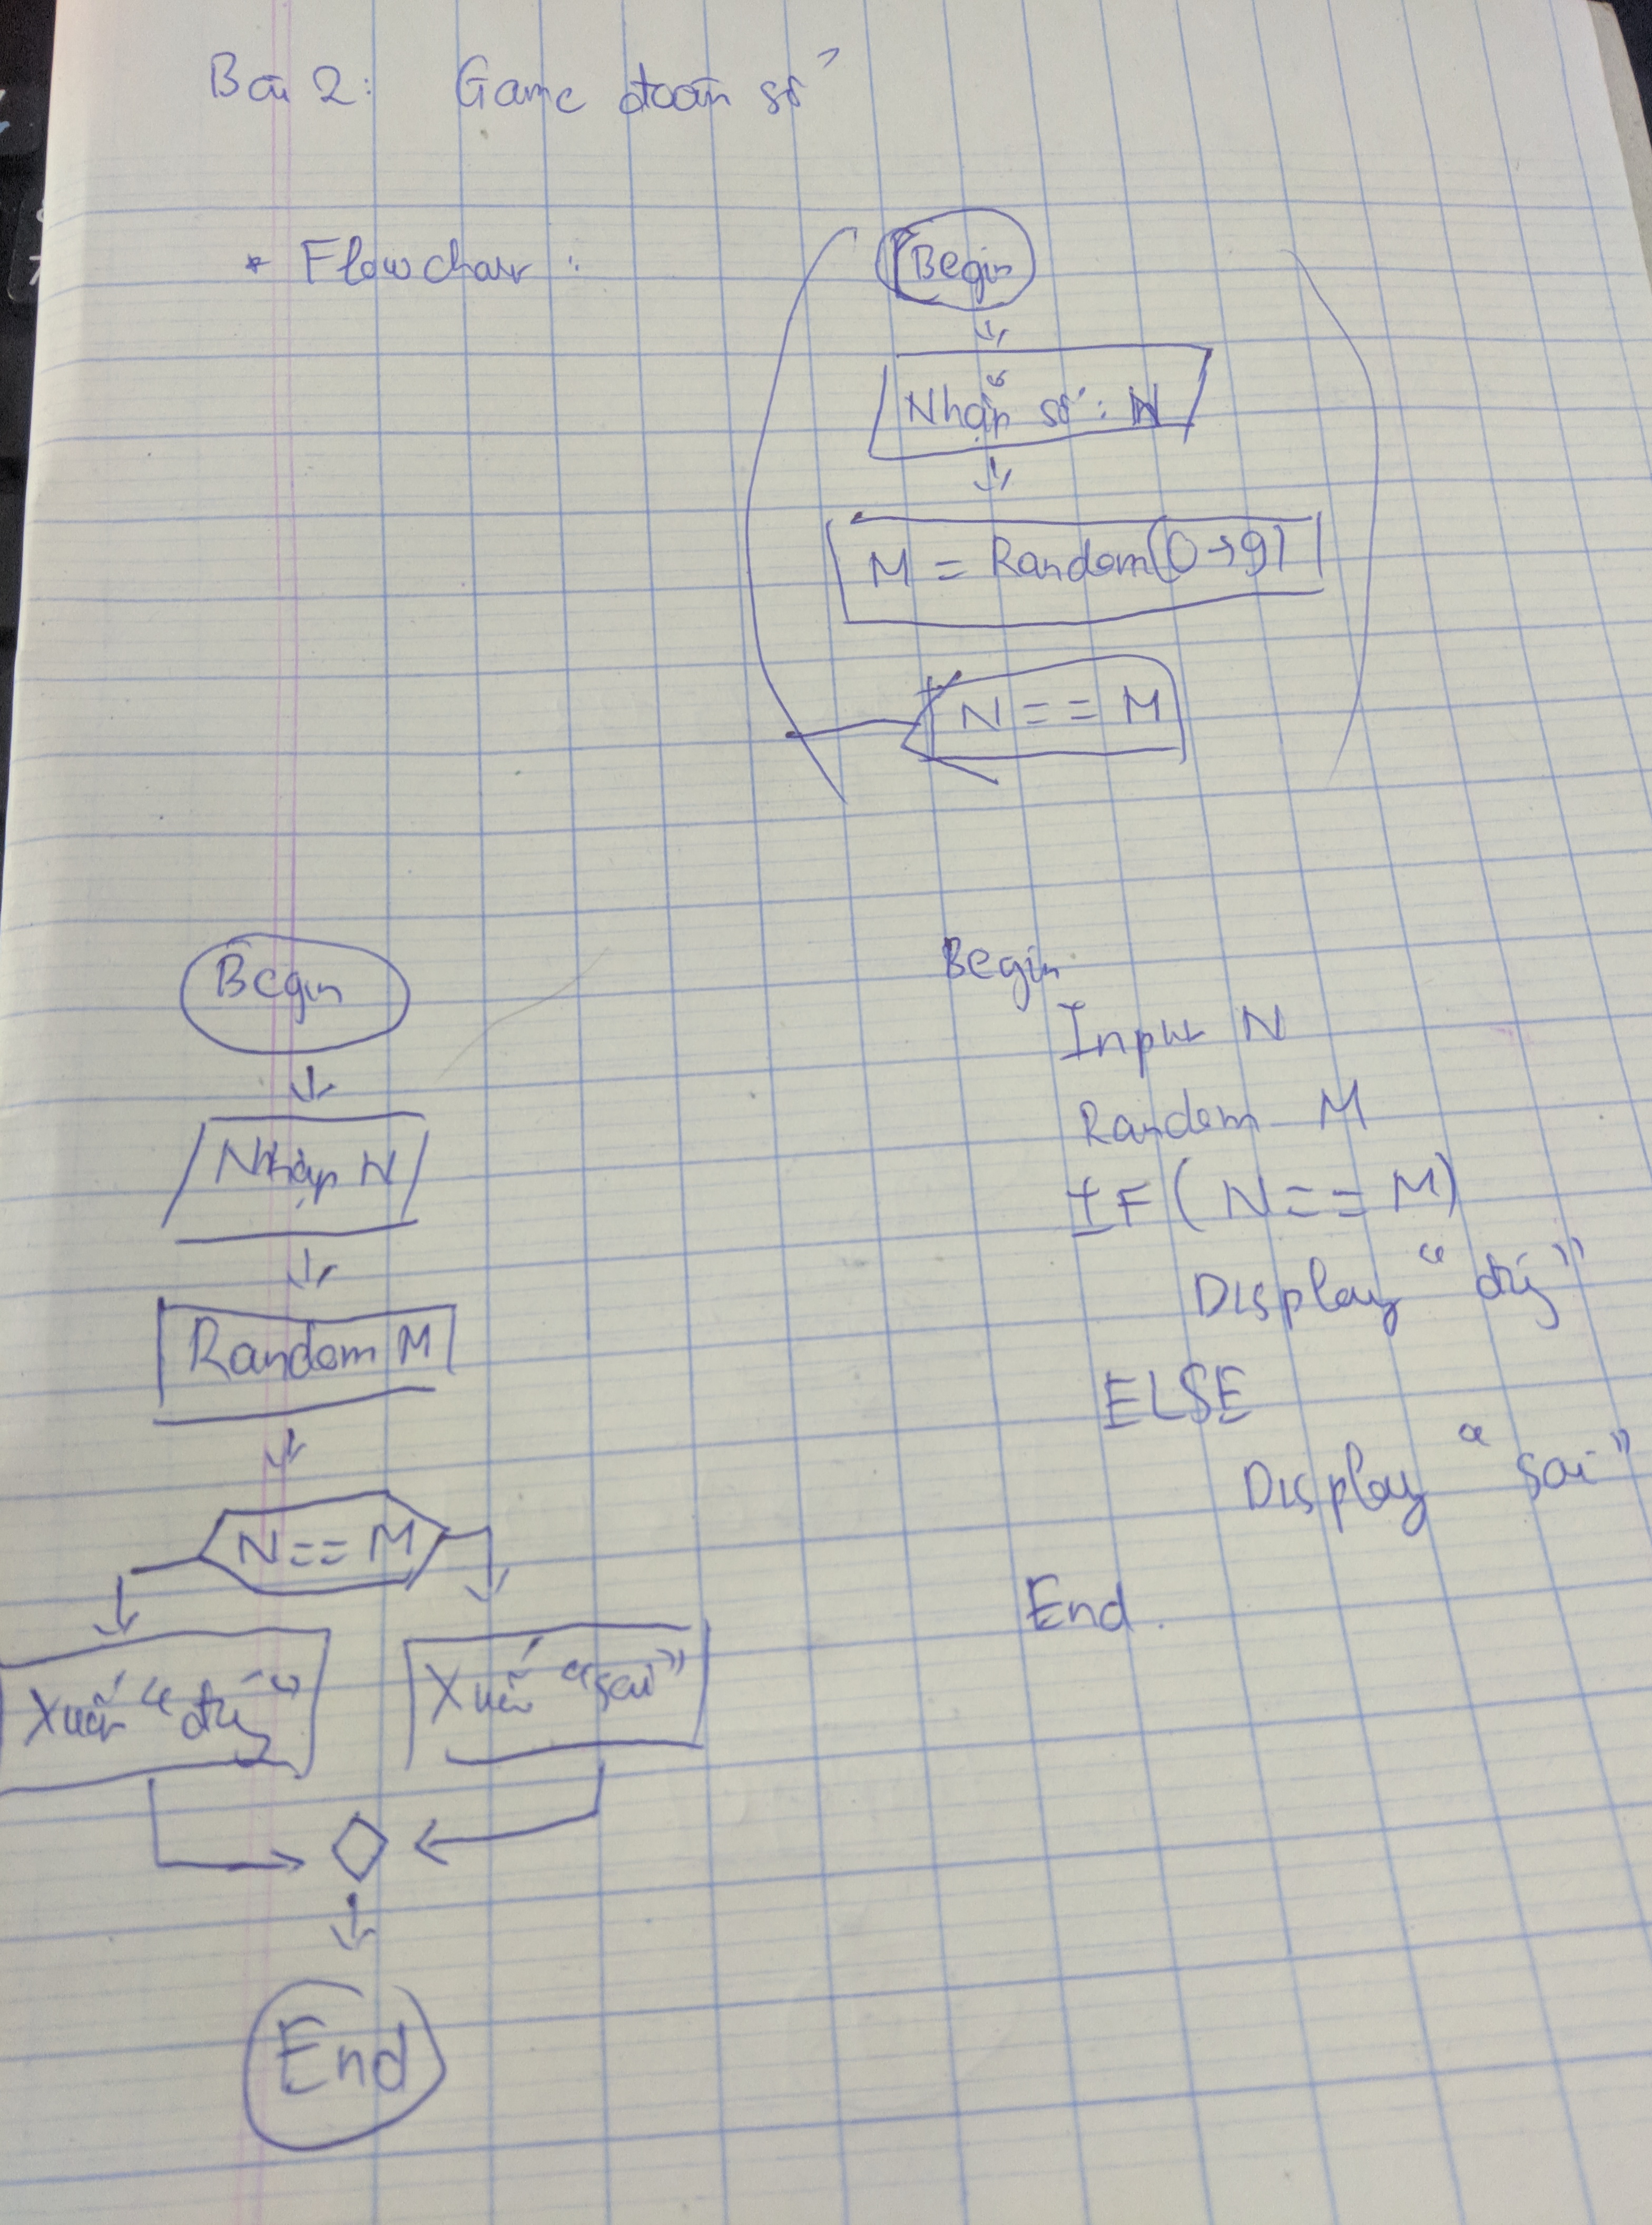 Bài 2: Game đoán số
* Flowchart:
Begin
Nhập số: N
M = Random(0→9)
N == M
Begin
Nhập N
Random M
N == M
Xuất "đúng"
Xuất "sai"
End
Begin
Input N
Random M
IF (N == M)
Display "đúng"
ELSE
Display "sai"
End.